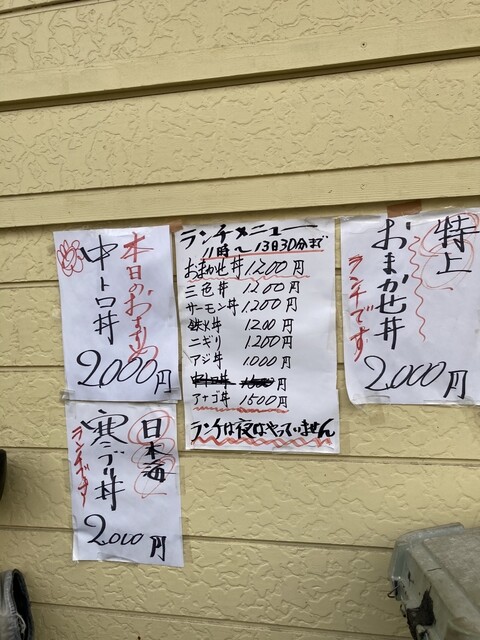 本日のおまかせ
中トロ丼
2,000円
ランチメニュー
11時〜13時30分まで
おまかせ丼 1,200円
三色丼 1200円
サーモン丼 1,200円
鉄火丼 1200円
ニギリ 1200円
アジ丼 1000円
中トロ丼 1500円
アナゴ丼 1500円
ランチは夜はやっていません
特上
おまかせ丼
ランチです
2,000円
日本海
寒ブリ丼
ランチです
2,000円